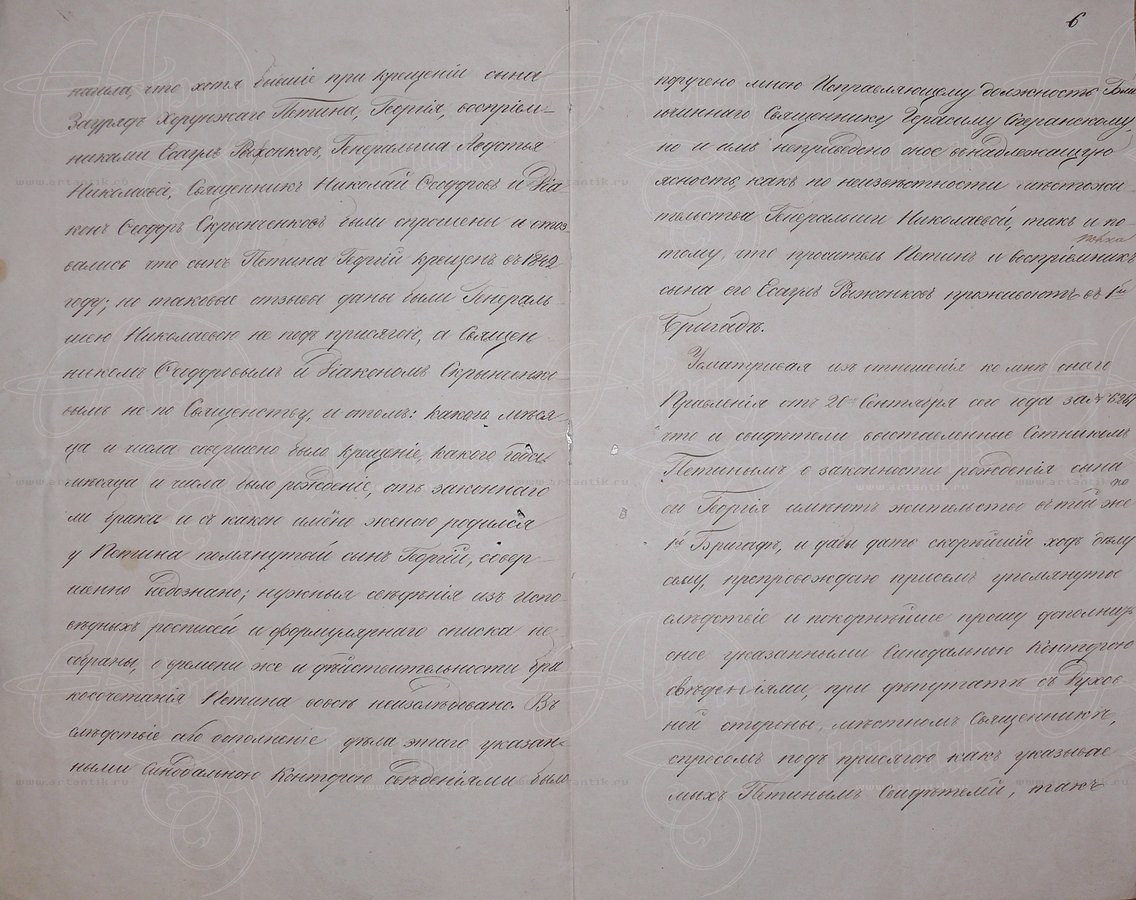 нашла, что хотя бывшіе при крещеніи сына
Зауряд Хорунжаго Петина, Георгія, воспріем-
никами Есаулъ Рыженковъ, Генеральша Авдотья
Николаева, Священникъ Николай Ѳедоровъ и Діа-
конъ Ѳедоръ Скрынченковъ были спрошены и отоз
вались что сынъ Петина Георгій крещенъ въ 1842
году; но таковые отзывы даны были Генераль-
шею Николаевою не подъ присягою, а Священ
никомъ Ѳедоровымъ и Діакономъ Скрынченко-
вымъ не по Священству, и о томъ: какого мѣся-
ца и числа совершено было крещеніе, какого года
мѣсяца и числа было рожденіе, отъ законнаго
ли брака и съ какою именно женою родился
у Петина помянутый сынъ Георгій, совер-
шенно недознано; нужныя свѣденія изъ испо-
вѣдныхъ росписей и формулярнаго списка не
собраны, о времени же и дѣйствительности бра
косочетанія Петина вовсе неизслѣдовано. Въ
слѣдствіе сего дополненіе дѣла этаго указан-
ными Синодальною Конторою свѣденіями было
6
поручено мною Исправляющему должность Бла
гочиннаго Священнику Герасиму
но и имъ неприведено оное въ надлежащую
ясность, какъ по неизвѣстности мѣстожи
тельства Генеральши Николаевой, такъ и по-
тому, что проситель Петинъ и воспріемникъ
сына его Есаулъ Рыженковъ проживаютъ въ 1й
Бригадѣ.
Усматривая изъ отношенія ко мнѣ онаго
Правленія отъ 20 Сентября сего года за №
что и свидѣтели выставленные Сотникомъ
Петинымъ о законности рожденія сына
его Георгія имѣютъ жительство въ той же
1й Бригадѣ, и дабы дать скорѣйшій ходъ дѣлу
сему, препровождаю присемъ упомянутое
слѣдствіе и покорнѣйше прошу дополнить
оное указанными Синодальною Конторою
свѣденіями, при депутатѣ съ Духов-
ной стороны, мѣстномъ Священникѣ,
спросомъ подъ присягою какъ указывае
мыхъ Петинымъ Свидѣтелей, такъ